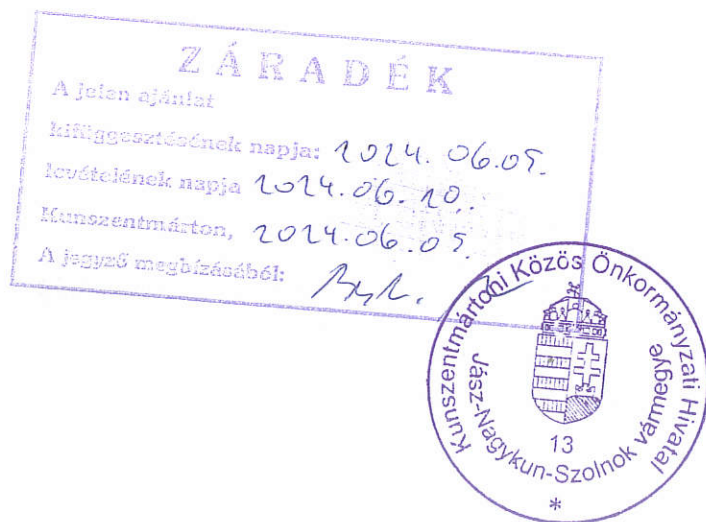 ZÁRADÉK
A jelen ajánlat
kifüggesztésének napja: 2024. 06.05.
levételének napja 2024.06.20.
Kunszentmárton, 2024.06.05.
A jegyző megbízásából:
Kunszentmártoni Közös Önkormányzati Hivatal
Jász-Nagykun-Szolnok vármegye
13
*